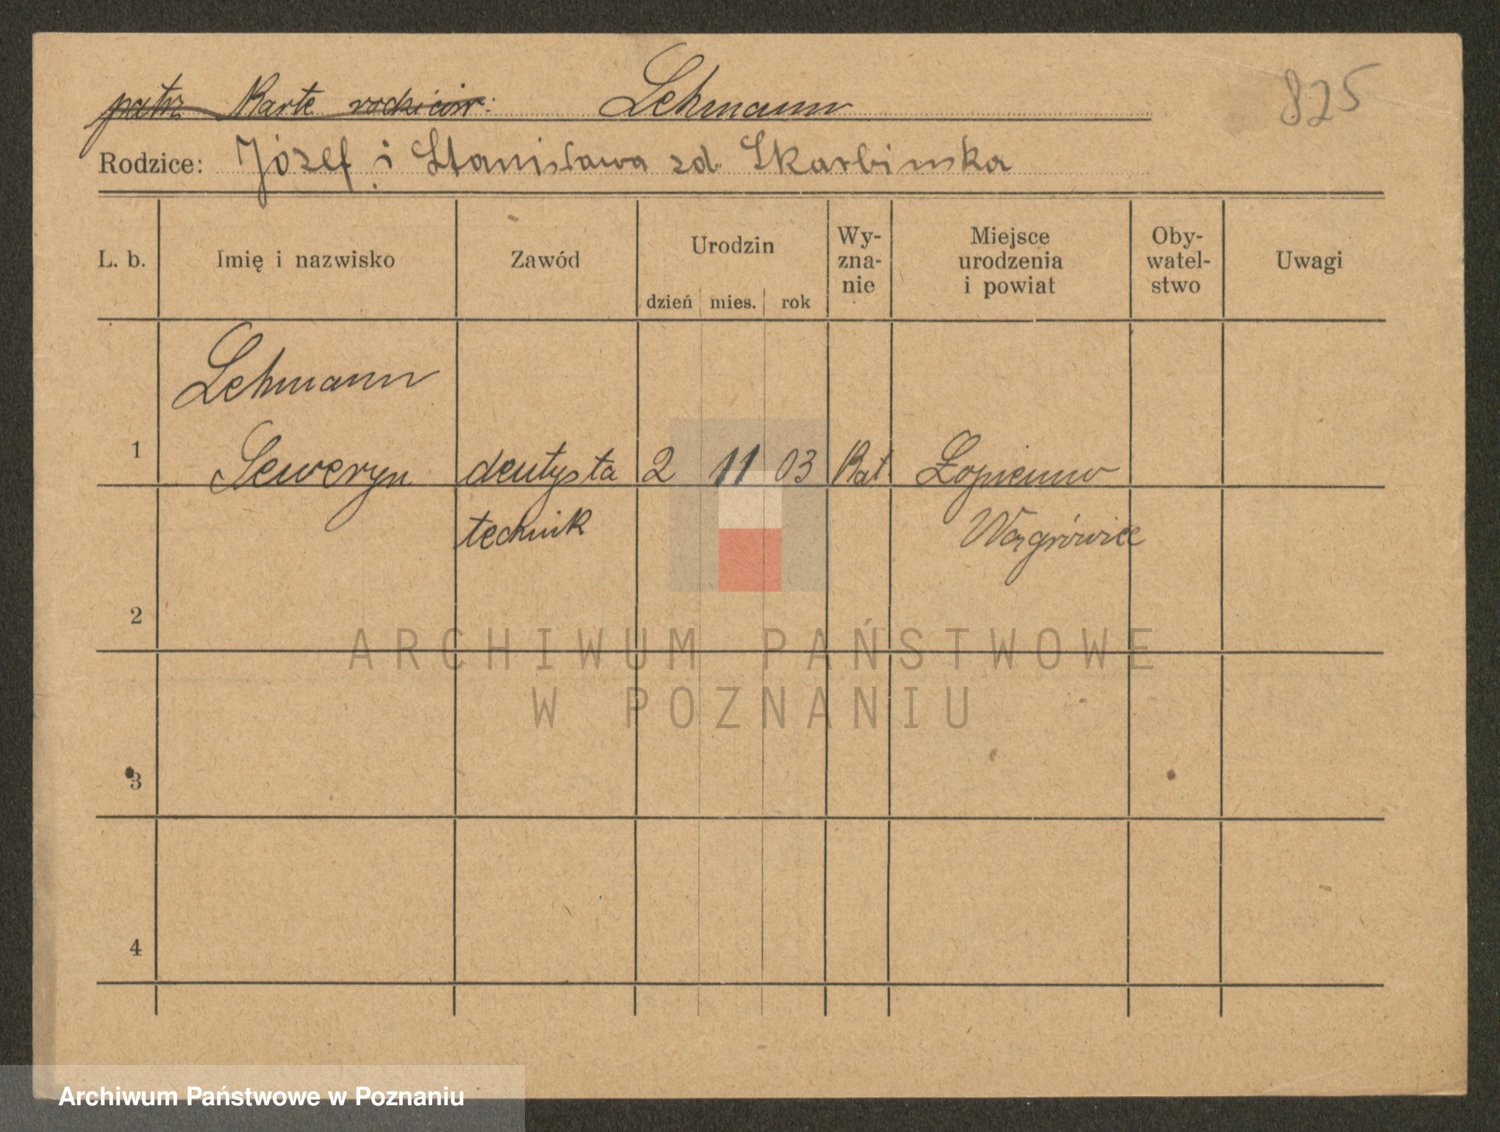 825
patrz Karte rodziców: Lehmann
Rodzice: Józef i Stanisława zd. Skarbinska
L. b. Imię i nazwisko Zawód Urodzin dzień mies. rok Wy-zna-nie Miejsce urodzenia i powiat Oby-watel-stwo Uwagi
Lehmann
1 Seweryn dentysta 2 11 03 Kat Łopienno
technik Wągrówiec
2
ARCHIWUM PAŃSTWOWE
W POZNANIU
3
4
Archiwum Państwowe w Poznaniu